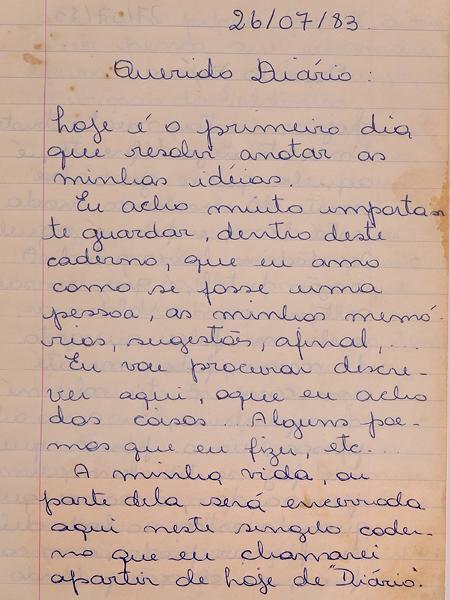 26/07/83
Querido Diário:
hoje é o primeiro dia
que resolvi anotar as
minhas idéias.
Eu acho muito importan
te guardar, dentro deste
caderno, que eu amo
como se fosse uma
pessoa, as minhas memó-
rias, sugestões, afinal,...
Eu vou procurar descre-
ver aqui, oque eu acho
das coisas... Alguns poe-
mas que eu fizer, etc...
A minha vida, ou
parte dela, será encerrada
aqui neste singelo cader-
no que eu chamarei
apartir de hoje de "Diário".